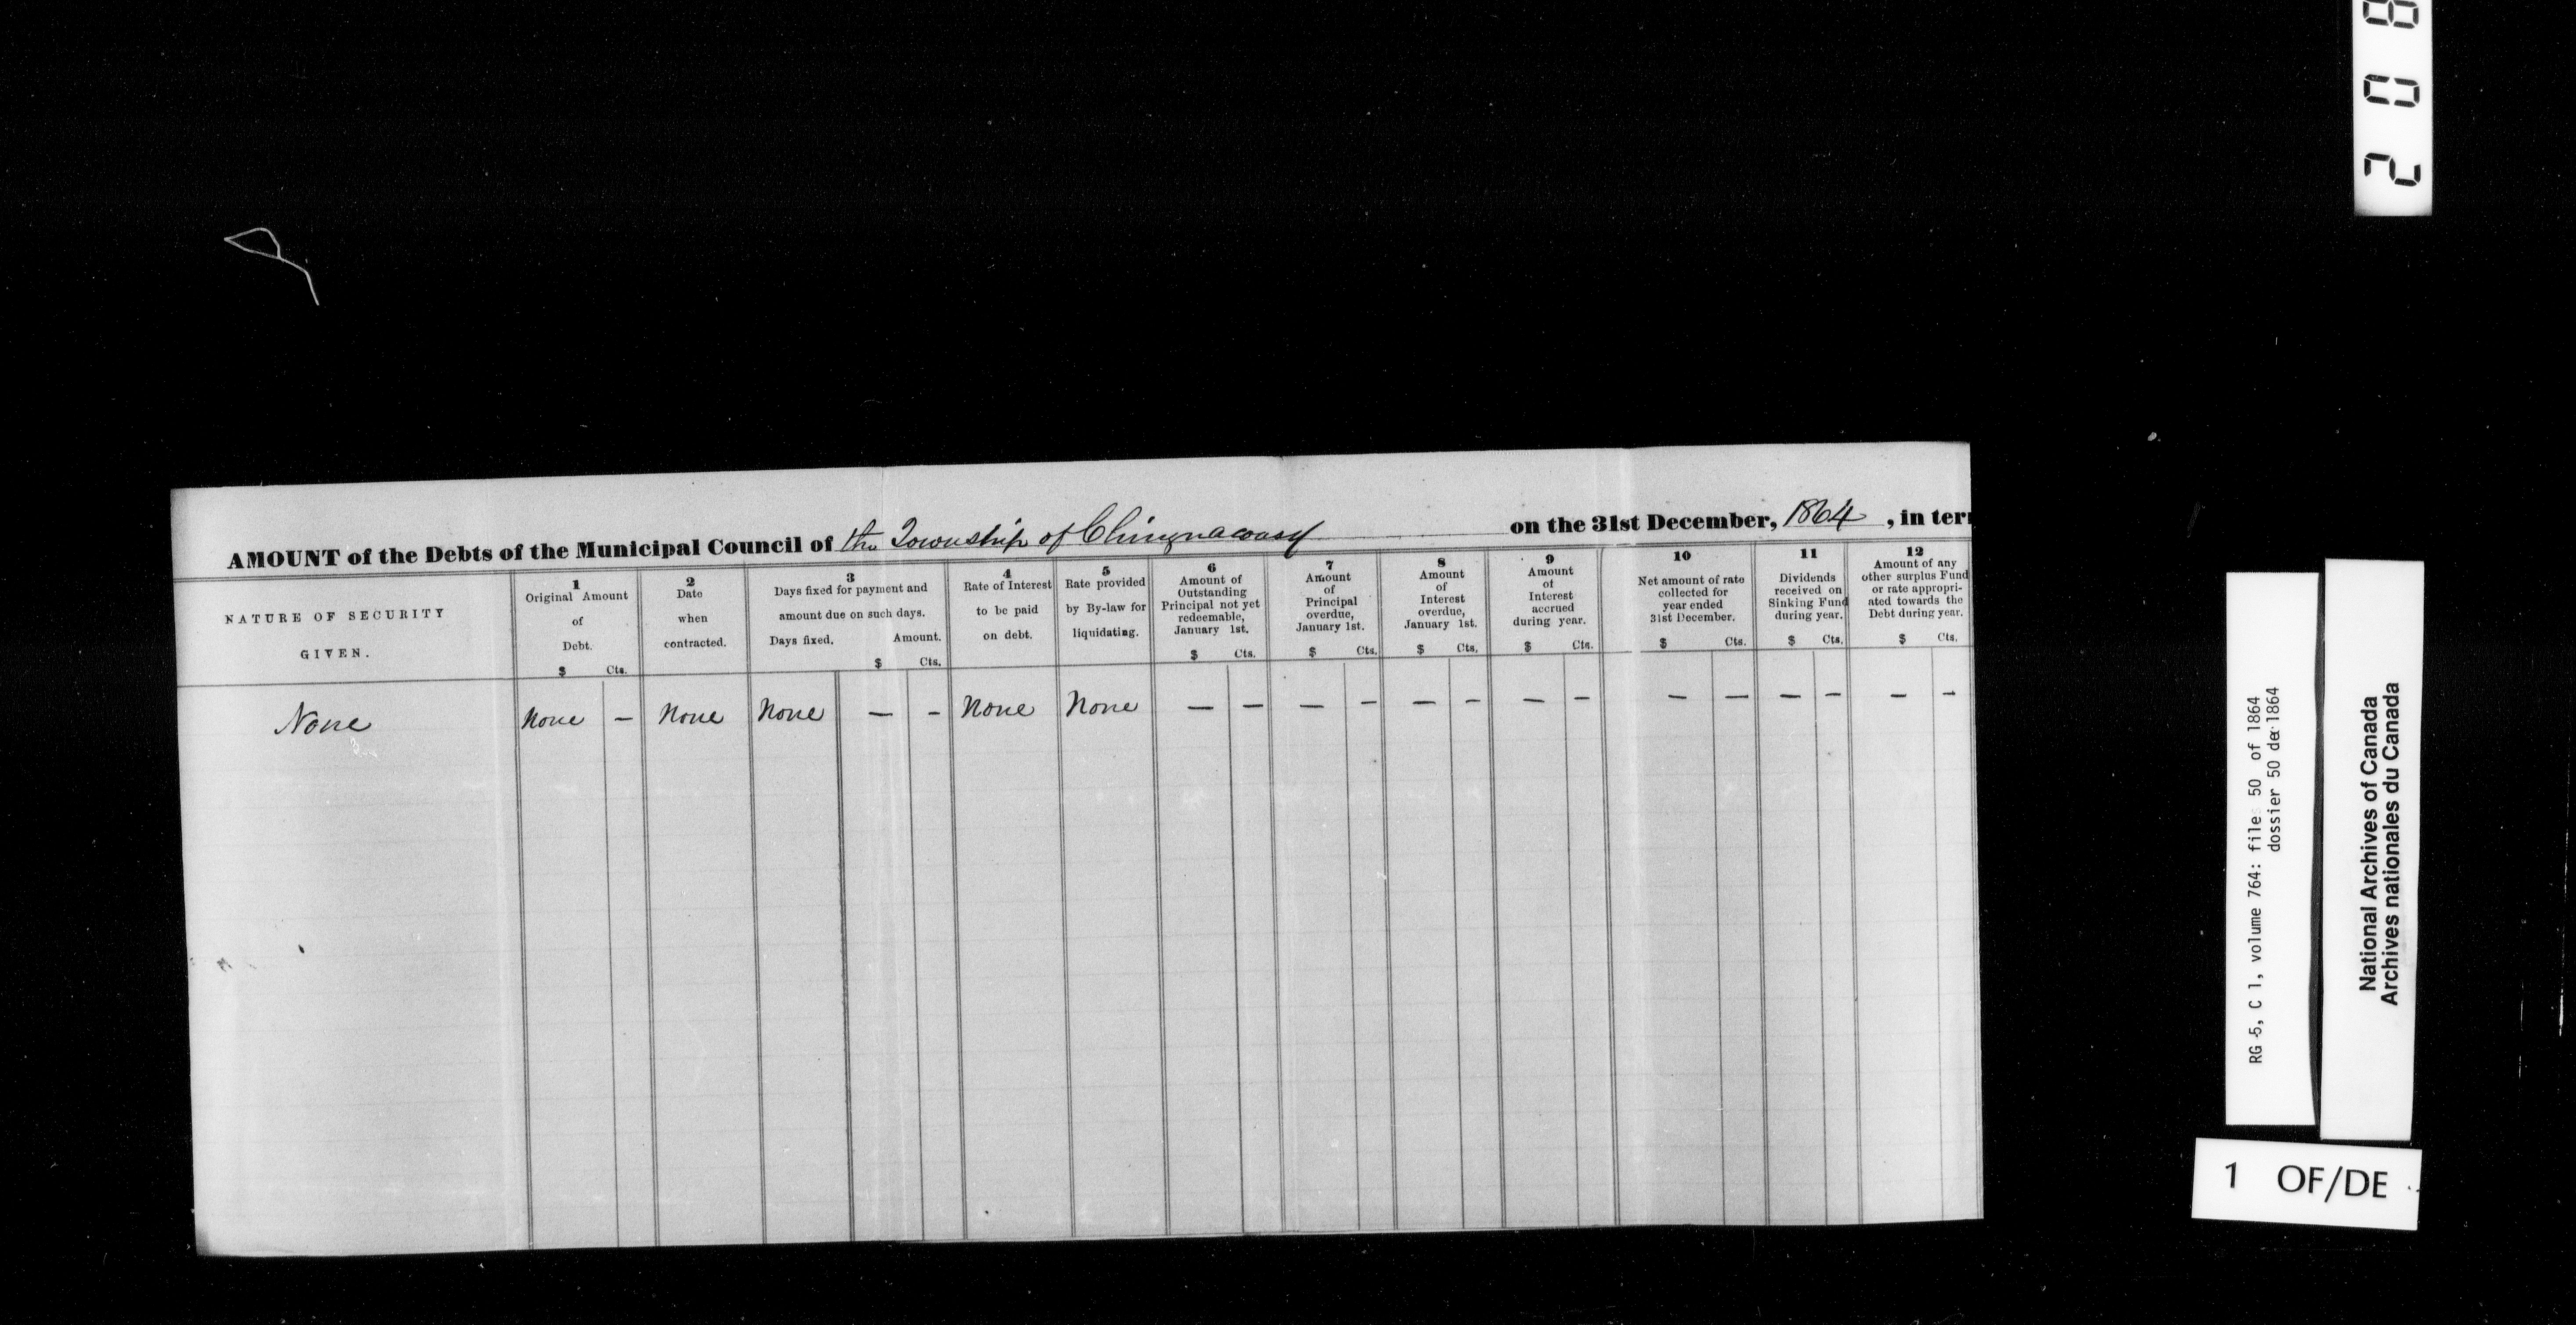 AMOUNT of the Debts of the Municipal Council of the Township of Chingnacousy on the 31st December, 1864, in ter
NATURE OF SECURITY
GIVEN.
1
Original Amount
of
Debt.
$ Cts.
2
Date
when
contracted.
3
Days fixed for payment and
amount due on such days.
Days fixed. Amount.
$ Cts.
4
Rate of Interest
to be paid
on debt.
5
Rate provided
by By-law for
liquidating.
6
Amount of
Outstanding
Principal not yet
redeemable,
January 1st.
$ Cts.
7
Amount
of
Principal
overdue,
January 1st.
$ Cts.
8
Amount
of
Interest
overdue,
January 1st.
$ Cts.
9
Amount
of
Interest
accrued
during year.
$ Cts.
10
Net amount of rate
collected for
year ended
31st December.
$ Cts.
11
Dividends
received on
Sinking Fund
during year.
$ Cts.
12
Amount of any
other surplus Fund
or rate appropri-
ated towards the
Debt during year.
$ Cts.
None None — None None — — None None — — — — — — — — — — — — — —
208
RG 5, C 1, volume 764: file 50 of 1864
dossier 50 de 1864
National Archives of Canada
Archives nationales du Canada
1 OF/DE